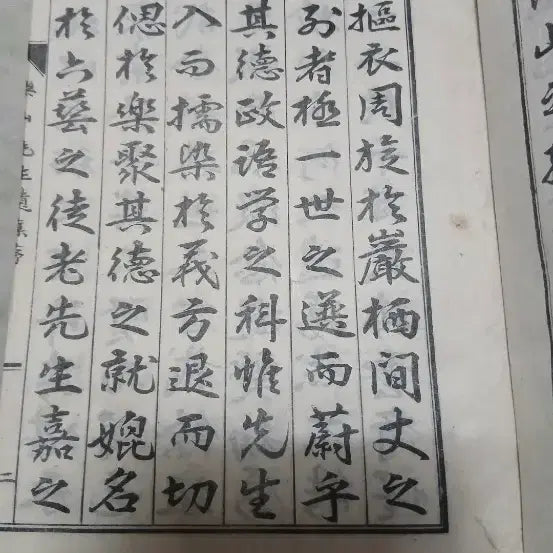 摳衣周旋於巖栖間丈之
列者極一世之選而蔚乎
其德政語学之科惟先生
入而擩染於義方退而切
偲於樂聚其德之就媲名
於六藝之徒老先生嘉之
先生遺集序
二